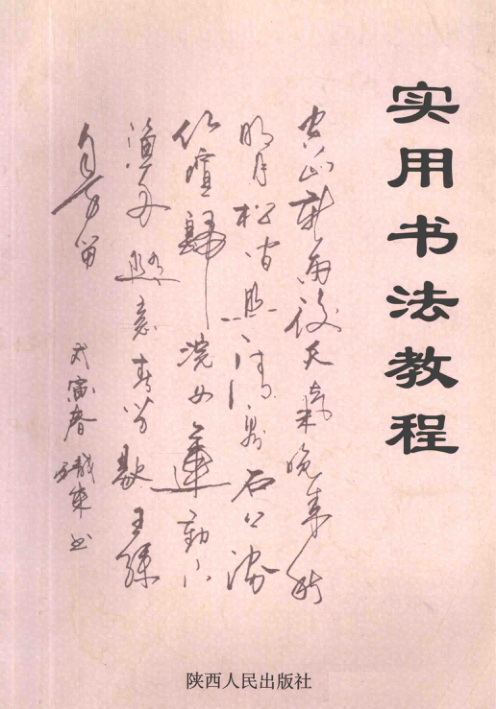 实用书法教程
空山新雨後天氣晚来秋
明月松间照清泉石上流
竹喧歸浣女蓮動下
漁舟随意春芳歇王孫
自可留
戊寅春
书
陕西人民出版社